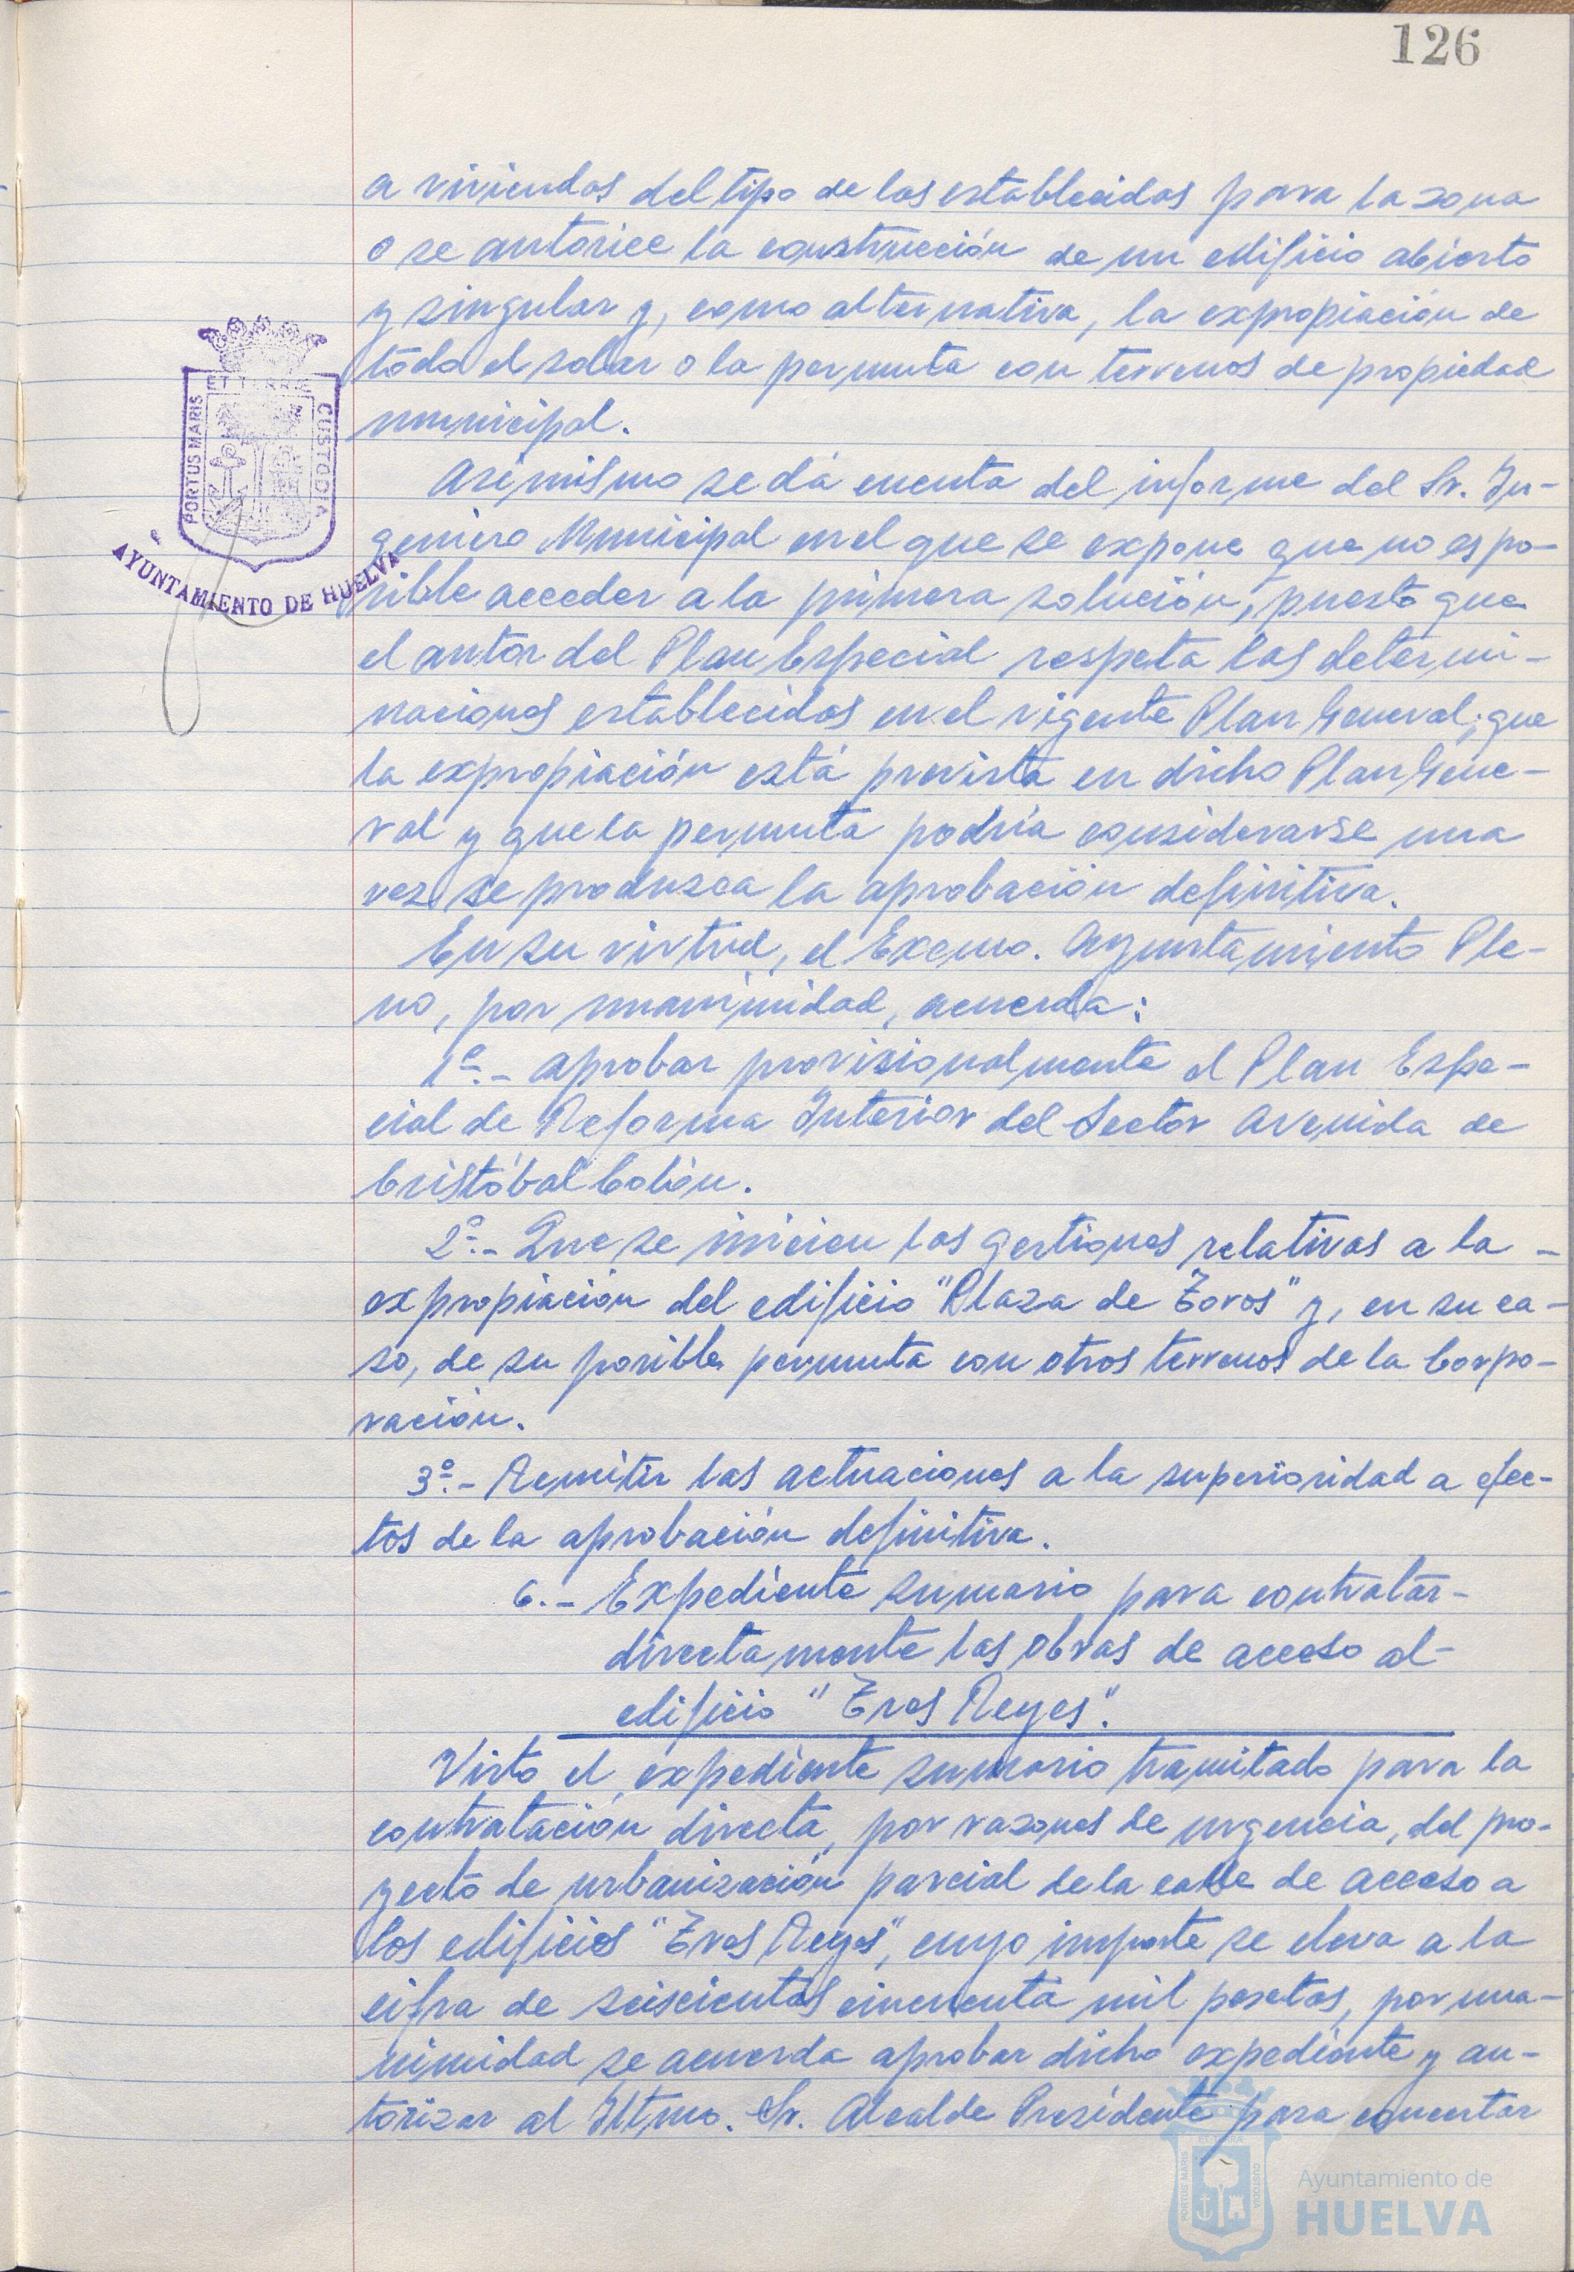 126
a viviendas del tipo de las establecidas para la zona
o se autorice la construcción de un edificio abierto
y singular y, como alternativa, la expropiación de
todo el solar o la permuta con terrenos de propiedad
municipal.
Asimismo se dá cuenta del informe del Sr. In-
geniero Municipal en el que se expone que no es po-
sible acceder a la primera solución, puesto que
el autor del Plan Especial respeta las determi-
naciones establecidas en el vigente Plan General; que
la expropiación está prevista en dicho Plan Gene-
ral y que la permuta podría considerarse una
vez se produzca la aprobación definitiva.
En su virtud, el Excmo. Ayuntamiento Ple-
no, por unanimidad, acuerda:
1º.- Aprobar provisionalmente el Plan Espe-
cial de Reforma Interior del Sector Avenida de
Cristóbal Colón.
2º.- Que se inicien las gestiones relativas a la -
expropiación del edificio "Plaza de Toros" y, en su ca-
so, de su posible permuta con otros terrenos de la Corpo-
ración.
3º.- Remitir las actuaciones a la superioridad a efec-
tos de la aprobación definitiva.
6.- Expediente sumario para contratar-
directamente las obras de acceso al-
edificio "Tres Reyes".
Visto el expediente sumario tramitado para la
contratación directa, por razones de urgencia, del pro-
yecto de urbanización parcial de la calle de acceso a
los edificios "Tres Reyes", cuyo importe se eleva a la
cifra de seiscientas cincuenta mil pesetas, por una-
nimidad se acuerda aprobar dicho expediente y au-
torizar al Iltmo. Sr. Alcalde Presidente para concertar
PORTUS MARIS
ET TERRÆ
CUSTODIA
AYUNTAMIENTO DE HUELVA
PORTUS MARIS
ET TERRA
CUSTODIA
Ayuntamiento de
HUELVA